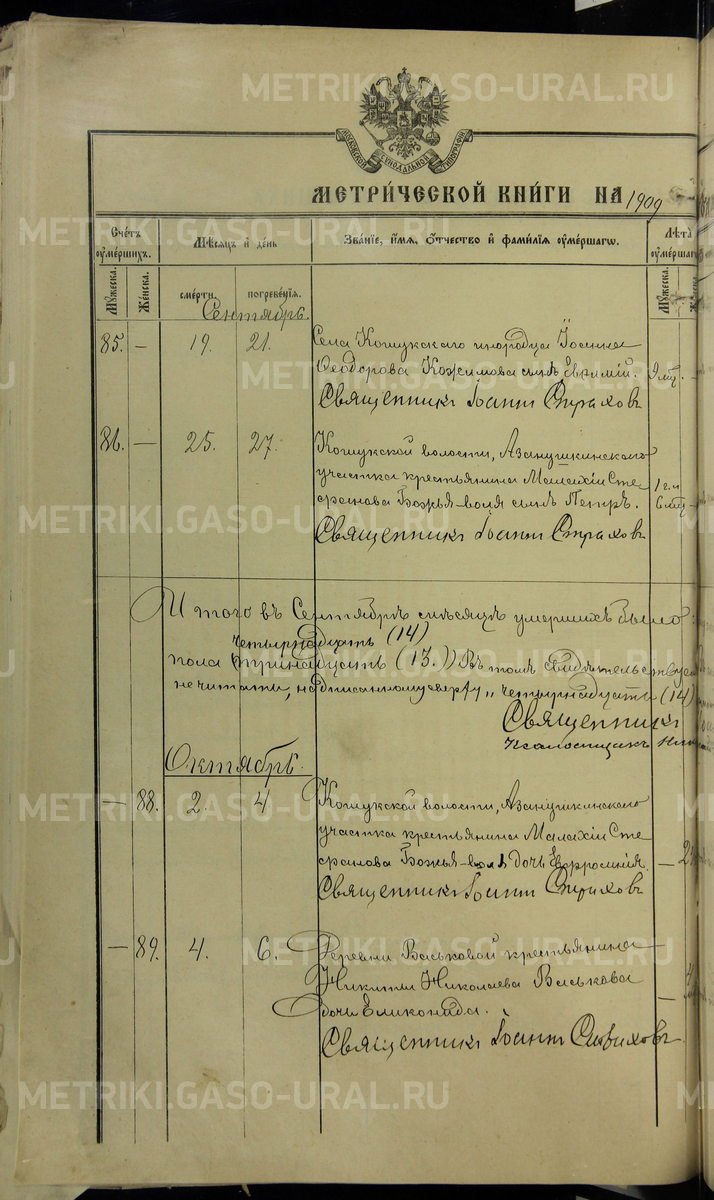 МОСКОВСКОЙ СѴНОДАЛЬНОЙ ТИПОГРАФІИ
МЕТРИ́ЧЕСКОЙ КНИ́ГИ НА 1909
Сче́тъ ᲂу҆ме́ршихъ.
Мѣ́сяцъ и҆ де́нь
Зва́нїе, и҆́мѧ, ѻ҆́тчество и҆ фами́лїѧ ᲂу҆ме́ршагѡ.
Лѣ́та ᲂу҆ме́ршаг
Мꙋ́жеска.
Же́нска.
сме́рти.
погребе́нїѧ.
Мꙋ́жеска.
Же́нска
Сентябрь.
85. — 19. 21. Села Кошукскаго инородца Іоанна
Ѳеодорова Кожимова сынъ Евѳимій. 9 мѣс.
Священникъ Іоаннъ Страховъ
86. — 25. 27. Кошукской волости, Азанушкинскаго
участка крестьянина Малахіи Сте
фанова Божья-воля сынъ Петръ. 1 г. и 6 мѣс.
Священникъ Іоаннъ Страховъ
Итого въ Сентябрѣ мѣсяцѣ умершихъ было:
четырнадцать (14)
пола тринадцать (13.)) Въ томъ свидѣтельствуе
не читать, надписанному сверху „четырнадцать (14)
Священникъ
Псаломщикъ
Октябрь.
— 88. 2. 4 Кошукской волости, Азанушкинскаго
участка крестьянина Малахіи Сте
фанова Божья-воля дочь Евфросинія. —
Священникъ Іоаннъ Страховъ
— 89. 4. 6. Деревни Васьковой крестьянина
Никиты Николаева Васькова
дочь Еликонида. —
Священникъ Іоаннъ Страховъ
METRIKI.GASO-URAL.RU